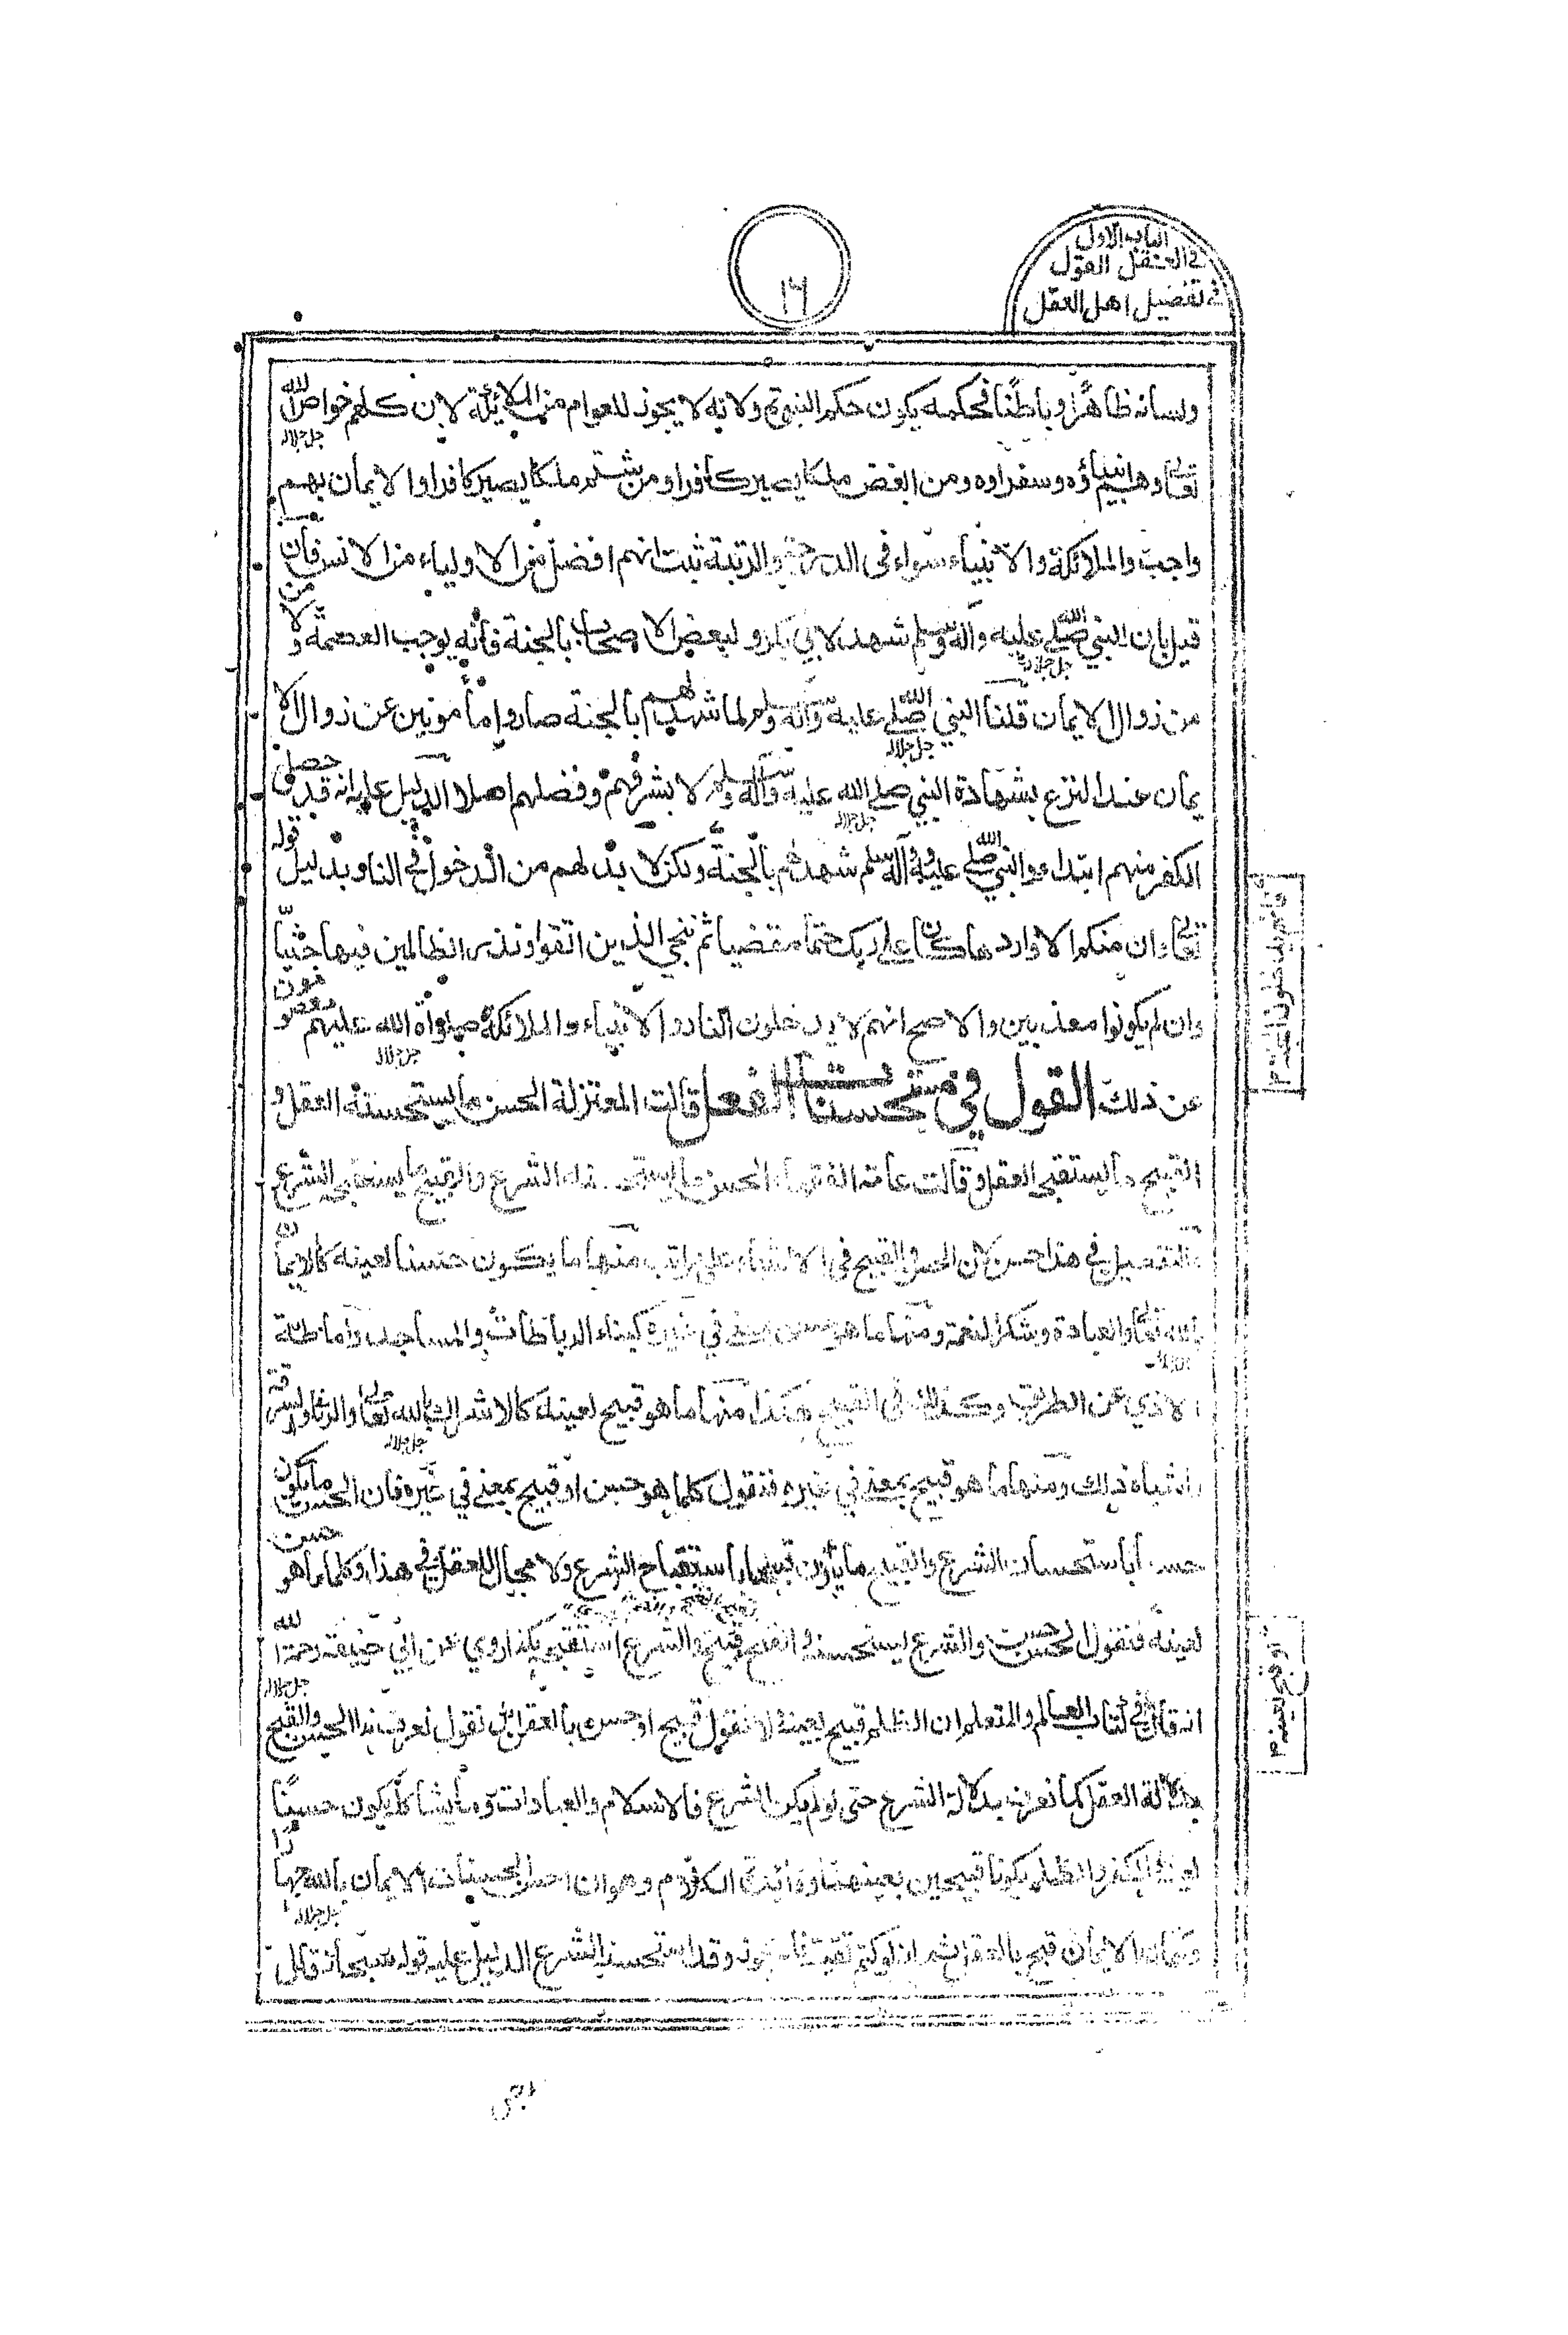 الباب الاول
في العقل القول
في تفضيل اهل العقل
١٦
ولسانه ظاهرًا وباطنًا فحكمه يكون حكم النبي ثم ولانه لا يجوز للعوام من الملائكة لان كلهم خواص الله
تعالى وهم انبياؤه وسفراوه ومن ابغض ملكا يصير كافرا ومن شتم ملكا يصير كافرا والايمان بهم
واجب والملائكة والانبياء سواء في الدرجة والرتبة ثبت انهم افضل من الاولياء من الانس فان
قيل بان النبي صلى الله عليه وآله وسلم شهد لابي بكر ولبعض الاصحاب بالجنة فانه يوجب العصمة ولا من
من زوال الايمان قلنا النبي صلى الله عليه وآله وسلم لما شهد لهم بالجنة صاروا مأمونين عن زوال الا
يمان عند النزع بشهادة النبي صلى الله عليه وآله وسلم لا بشرفهم وفضلهم اصلا الدليل عليه انه قد حصل
الكفر منهم ابتداء والنبي صلى الله عليه وآله وسلم شهد لهم بالجنة ولكن لا بد لهم من الدخول في النار بدليل قوله
تعالى وان منكم الا واردها كان على ربك حتما مقضيا ثم ننجي الذين اتقوا ونذر الظالمين فيها جثيّا
وان لم يكونوا معذبين والاصح انهم لا يدخلون النار والانبياء والملائكة صلوة الله عليهم معصومون
عن ذلك القول في مستحسنات الفعل قالت المعتزلة الحسن ما يستحسنه العقل و
القبيح ما يستقبح العقل وقالت عامة الفقهاء الحسن ما يستحسنه الشرع والقبيح ما يستقبح الشرع
والتفصيل في هذا حسن لان الحسن والقبيح في الاشياء على مراتب منها ما يكون حسنا لعينه كالايمان
بالله تعالى والعبادة وشكر النعمة ومنها ما هو حسن بمعنى في غيره كبناء الرباطات والمساجد واماطة
الاذي عن الطريق وكذلك في القبيح هكذا منها ما هو قبيح لعينه كالاشراك بالله تعالى والزنا والسرقة
واشباه ذلك ومنها ما هو قبيح بمعنى في غيره فنقول كلما هو حسن او قبيح بمعنى في غيره فان الحسن ما يكون
حسنا باستحسان الشرع والقبيح ما يكون قبيحا باستقباح الشرع ولا مجال للعقل في هذا وكلما هو حسن
لعينه فنقول الحسن حسن والشرع استحسنه والقبيح قبيح والشرع استقبحه هكذا روي عن ابي حنيفة رحمة الله
انه قال في كتاب العالم والمتعلم ان الظلم قبيح لعينه ولا نقول قبيح او حسن بالعقل بل نقول نعرف هذا الحسن والقبيح
بدلالة العقل كما نعرف بدلالة الشرع حتى لو لم يكن الشرع فالاسلام والعبادات وما يشاكله يكون حسنًا
لعينه والكفر والظلم يكونا قبيحين بعينهما وفائدة الكلام وهو ان احسن الحسنات الايمان بالله جهارا
وكتمان الايمان قبيح بالعقل ثم انه لو كتم تقيّة فانه يجوز وقد استحسنه الشرع الدليل عليه قوله سبحانه قال